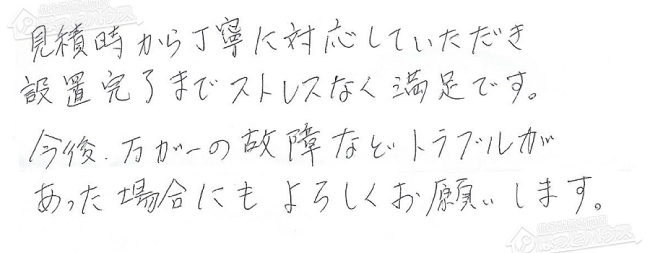 見積時から丁寧に対応していただき
設置完了までストレスなく満足です。
今後、万が一の故障などトラブルが
あった場合にもよろしくお願いします。